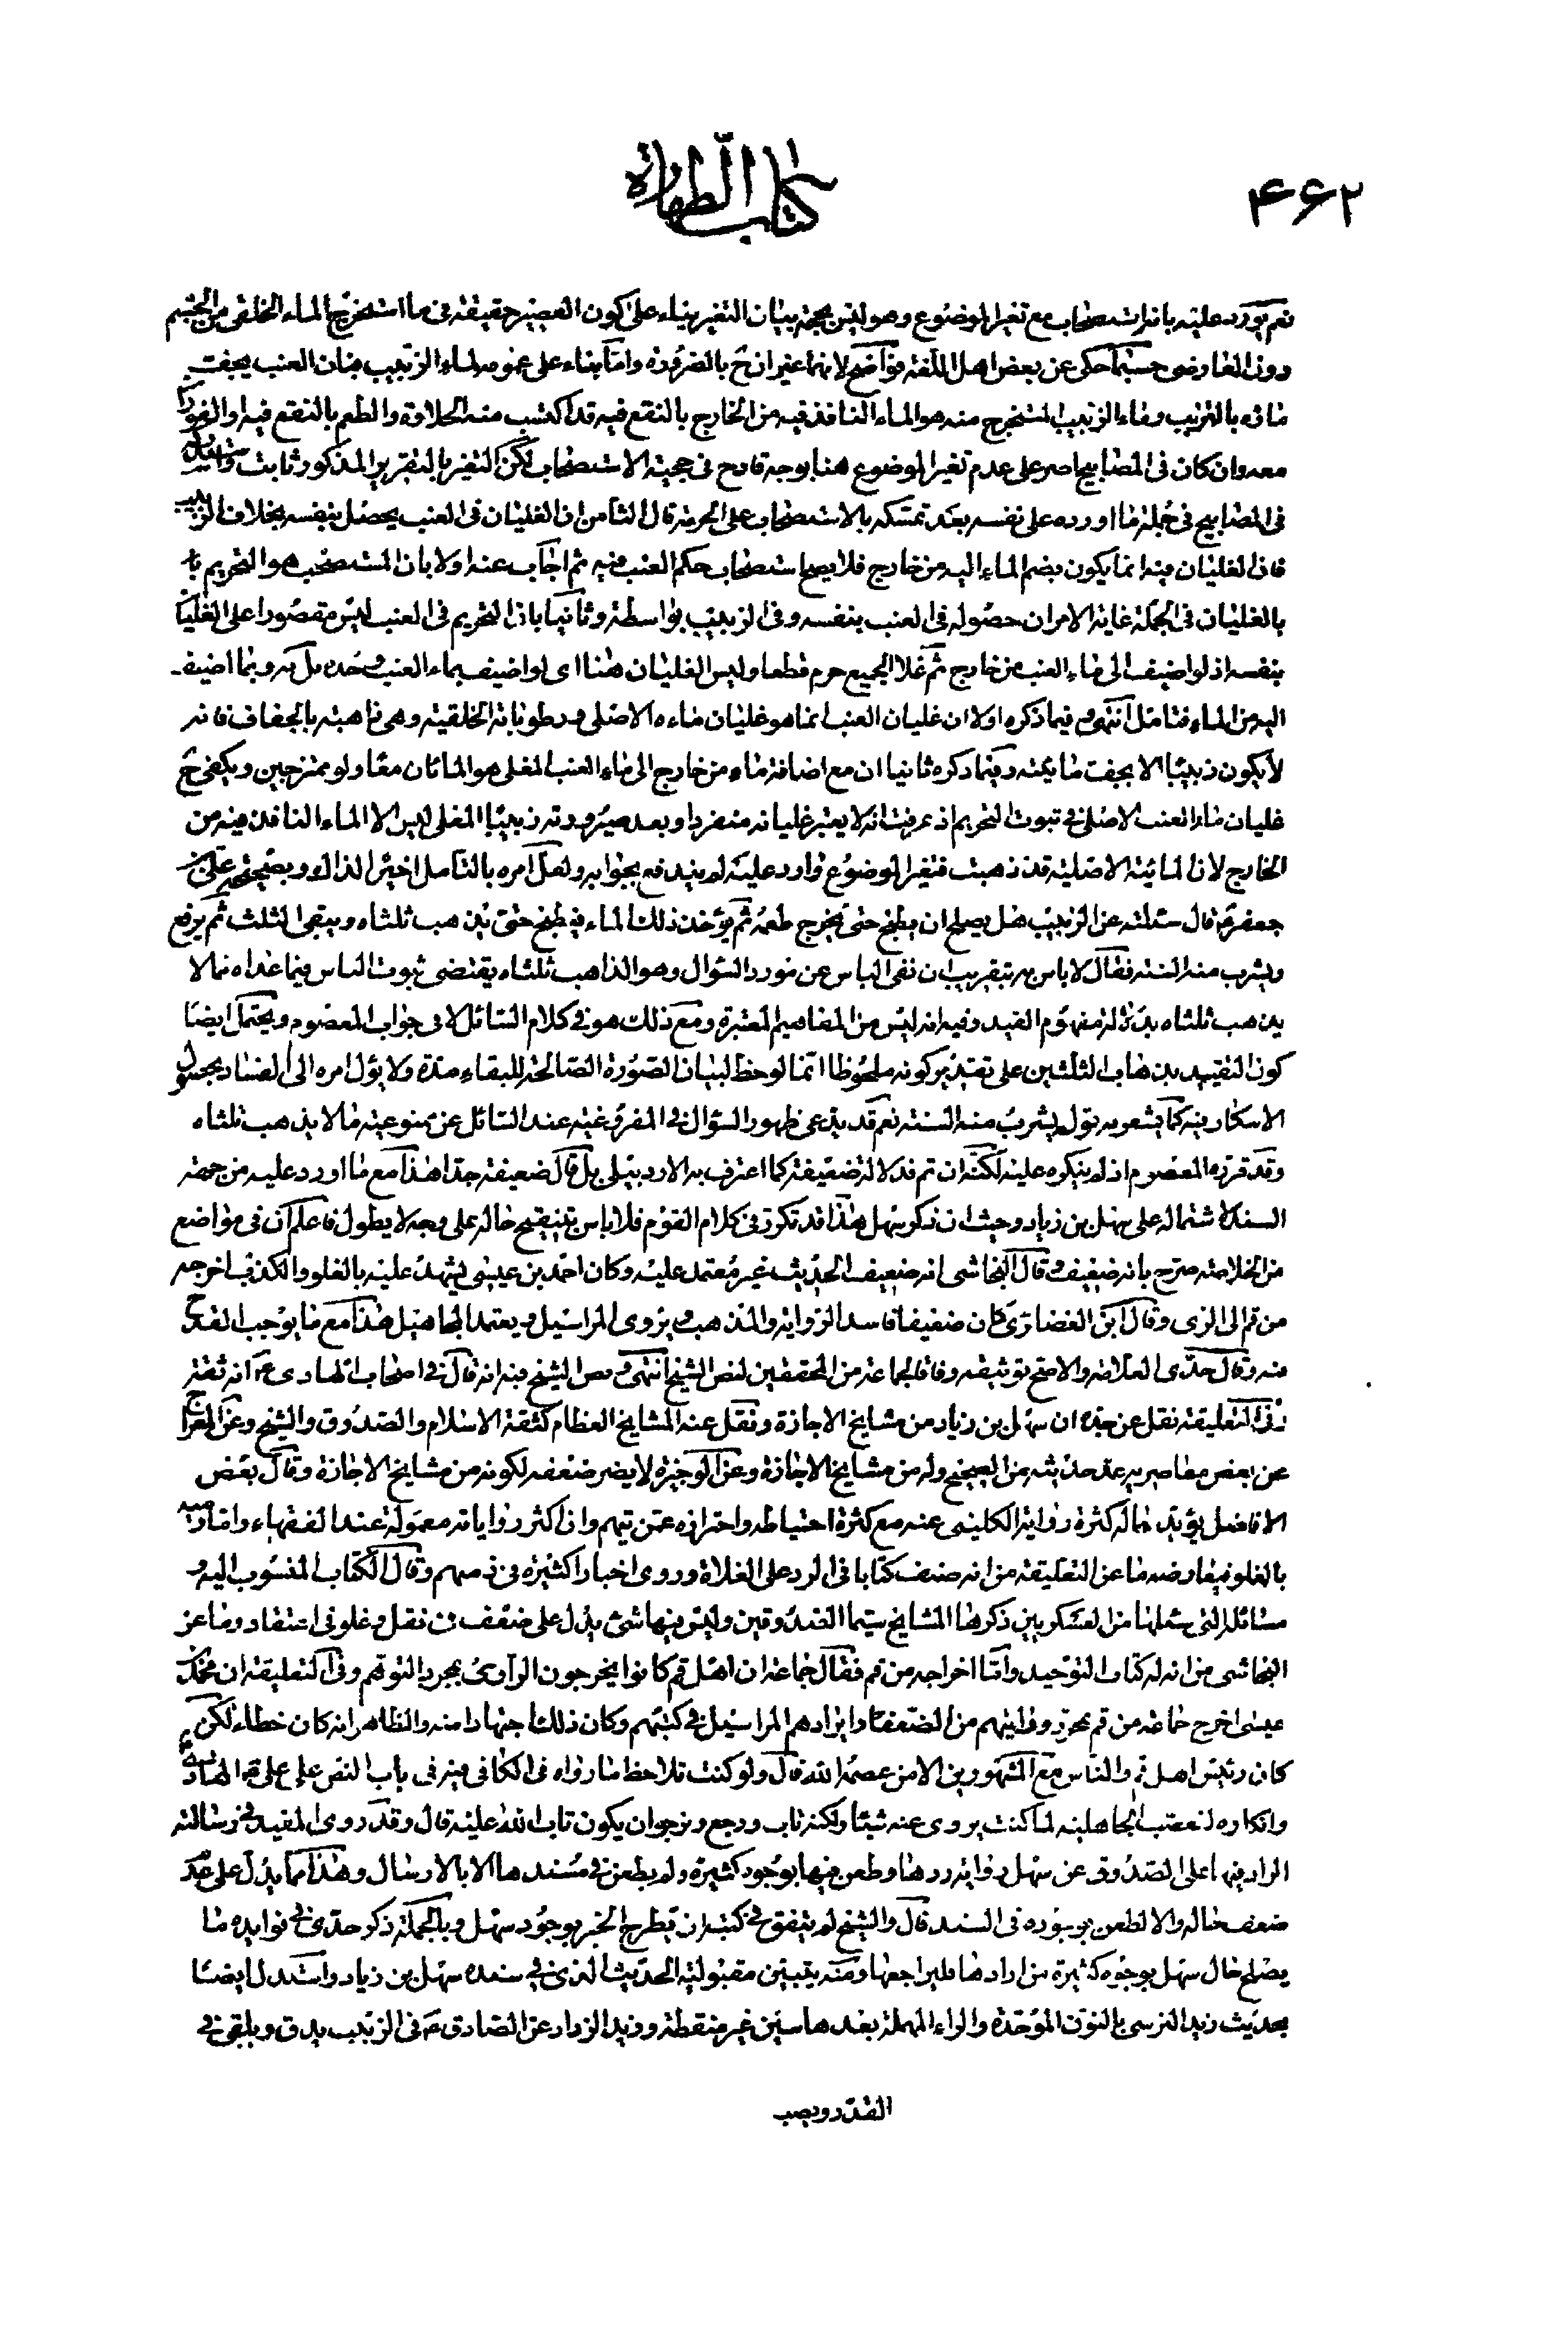 ٤٦٢
كتاب الطهارة
نعم يورد عليه بانه استصحاب مع تغير الموضوع وهو ليس بحجة بيان التغير بناء على كون العصير حقيقة فى ما استخرج الماء الخلقى من الجسم
دون العارضى حسبما حكى عن بعض اهل اللغة فواضح لانهما غيران ح بالضرورة واما بناء على عمومه لماء الزبيب فبان العنب يجفت
مائه بالتزبيب وماء الزبيب المستخرج منه هو الماء النافذ فيه من الخارج بالنقع فيه قد اكتسب منه الحلاوة والطعم بالنقع فيه او الفوران
معه وان كان فى المصابيح اصر على عدم تغير الموضوع هنا بوجه قادح فى حجية الاستصحاب لكن التغير بالتقرير المذكور ثابت
فى المصابيح فى جملة ما اورده على نفسه بعد تمسكه بالاستصحاب على الحرمة قال الثامن ان الغليان فى العنب يحصل بنفسه بخلاف الزبيب
فان الغليان فيه انما يكون بضم الماء اليه من خارج فلا يصح استصحاب حكم العنب فيه ثم اجاب عنه اولا بان المستصحب هو التحريم
بالغليان فى الجملة غاية الامر ان حصوله فى العنب بنفسه وفى الزبيب بواسطة وثانيا بان التحريم فى العنب ليس مقصورا على الغليان
بنفسه اذ لو اضيف الى ماء العنب من خارج ثم غلا الجميع حرم قطعا وليس الغليان هنا اى لو اضيف بماء العنب وحده بل به وبما اضيف
اليه من الماء فتامل انتهى وفيما ذكره اولا ان غليان العنب انما هو غليان ماءه الاصلى ورطوباته الخلقية وهى ذاهبة بالجفاف فانه
لا يكون زبيبا الا بجفت مائيته وفيما ذكره ثانيا ان مع اضافة ماء من خارج الى ماء العنب المغلى هو المائان معا ولو ممتزجين ويكفى ح
غليان ماء العنب الاصلى فى ثبوت التحريم اذ عرفت انه لا يعتبر غليانه منفردا وبعد صيرورته زبيبا المغلى ليس الا الماء النافذ فيه من
الخارج لان المائية الاصلية قد ذهبت فتغير الموضوع وارد عليه لم يندفع بجوابه ولعل امره بالتامل اخيرا لذلك وبصحيحة على بن
جعفر ع قال سئلته عن الزبيب هل يصلح ان يطبخ حتى يخرج طعمه ثم يؤخذ ذلك الماء فيطبخ حتى يذهب ثلثاه ويبقى الثلث ثم يرفع
ويشرب منه السنة فقال لا باس به بتقريب ان نفى الباس عن مورد السؤال وهو الذاهب ثلثاه يقتضى ثبوت الباس فيما عداه مما لا
يذهب ثلثاه بدلالة مفهوم القيد وفيه انه ليس من المفاهيم المعتبرة ومع ذلك هو فى كلام السائل لا فى جواب المعصوم ويحتمل ايضا
كون التقييد بذهاب الثلثين على تقدير كونه ملحوظا انما لوحظ لبيان الصورة الصالحة للبقاء مدة ولا يؤل امره الى الفساد بحصول
الاسكار فيه كما يشعر به قوله يشرب منه السنة نعم قد يدعى ظهور السؤال فى المفروغية عند السائل عن ممنوعية ما لا يذهب ثلثاه
وقد قرره المعصوم اذ لم ينكره عليه لكنه ان تم فدلالة ضعيفة كما اعترف به الاردبيلى بل قال ضعيفة جدا هذا مع ما اورد عليه من جهة
السند لاشتماله على سهل بن زياد وحيث ان ذكر سهل هذا قد تكرر فى كلام القوم فلا باس بتنقيح حاله على وجه لا يطول فاعلم ان فى مواضع
من الخلاصة صرح بانه ضعيف وقال النجاشى انه ضعيف الحديث غير معتمد عليه وكان احمد بن عيسى يشهد عليه بالغلو والكذب اخرجه
من قم الى الرى وقال ابن الغضائرى كان ضعيفا فاسد الرواية والمذهب ويروى المراسيل ويعتمد المجاهيل هذا مع ما يوجب القدح
منه وقال جدى العلامة والاصح توثيقه وفاقا لجماعة من المحققين لنص الشيخ انتهى ونص الشيخ فيه انه قال فى اصحاب الهادى ع انه ثقة
وفى التعليقة نقل عن جده ان سهل بن زياد من مشايخ الاجازة ونقل عنه المشايخ العظام كثقة الاسلام والصدوق والشيخ وعن المعراج
عن بعض معاصريه عد حديثه من الصحيح وانه من مشايخ الاجازة وعن الوجيزة لا يضر ضعفه لكونه من مشايخ الاجازة وقال بعض
الافاضل يؤيد حاله كثرة رواية الكلينى عنه مع كثرة احتياطه واحترازه عمن يتهم وان اكثر رواياته معمولة عند الفقهاء واما رميه
بالغلو فيعارضه ما عن التعليقة من انه صنف كتابا فى الرد على الغلاة وروى اخبارا كثيرة فى ذمهم وقال الكتاب المنسوب اليه و
مسائله التى سئلها من العسكريين ذكرها المشايخ سيما الصدوقين وليس فيها شئ يدل على ضعف فى نقل وغلو فى اعتقاد وما عن
النجاشى من ان له كتاب التوحيد واما اخراجه من قم فقال جماعة ان اهل قم كانوا يخرجون الراوى بمجرد التوهم وفى التعليقة ان محمد بن
عيسى اخرج جماعة من قم بمجرد روايتهم من الضعفاء وايرادهم المراسيل فى كتبهم وكان ذلك اجتهادا منه والظاهر انه كان خطاء لكن
كان رئيس اهل قم والناس مع المشهورين الا من عصمه الله قال ولو كنت تلاحظ ما رواه فى الكافى فيه فى باب النص على على الهادى
وانكاره لتعصب الجاهلية لما كنت يروى عنه شيئا ولكنه تاب ورجع ونرجو ان يكون تاب الله عليه قال وقد روى المفيد فى رسالته
الراد فيها على الصدوق عن سهل رواية ردها وطعن فيها بوجوه كثيرة ولم يطعن فى مسندها الا بالارسال وهذا مما يدل على عدم
ضعف حاله والا لطعن بوروده فى السند قال والشيخ لم يتفوق فى كتبه ان يطرح الخبر بوجود سهل وبالجملة ذكر جدى فى فوايده ما
يصلح حال سهل بوجوه كثيرة من ارادها فليراجعها ومنه يتبين مقبولية الحديث الذى فى سنده سهل بن زياد واستدل ايضا
بحديث زيد النرسى بالنون الموحدة والراء المهملة بعدها سين غير منقطة وزيد الزراد عن الصادق ع فى الزبيب يدق ويلقى فى
القدر ويصب